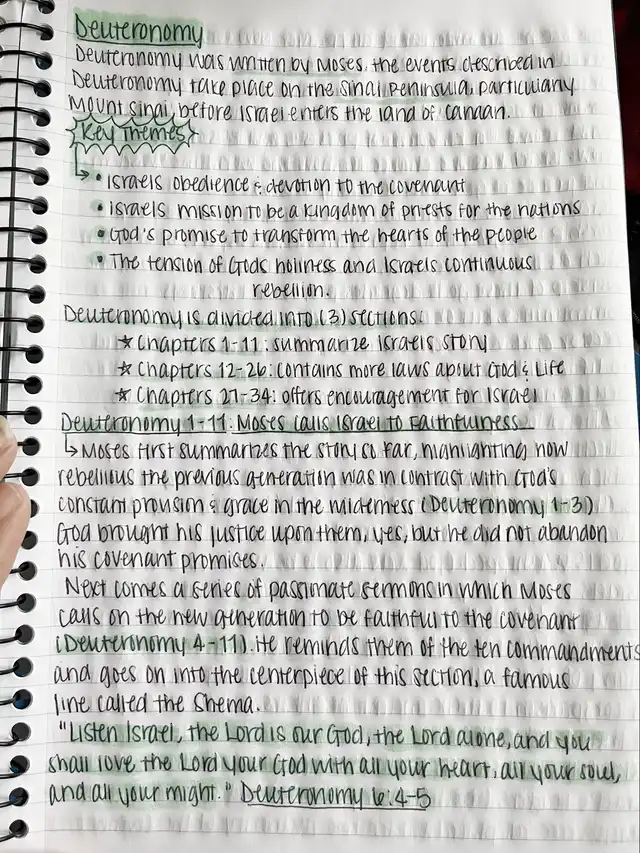 Deuteronomy
Deuteronomy was written by Moses, the events described in
Deuteronomy take place on the Sinai Peninsula, particularly
Mount Sinai, before Israel enters the land of Canaan.
Key Themes
↳ • Israels obedience & devotion to the covenant
• Israels mission to be a kingdom of priests for the nations
• God's promise to transform the hearts of the people
• The tension of Gods holiness and Israels continuous
rebellion.
Deuteronomy is divided into (3) sections:
☆ Chapters 1-11: summarize Israels story
☆ Chapters 12-26: contains more laws about God & Life
☆ Chapters 27-34: offers encouragement for Israel
Deuteronomy 1-11: Moses calls Israel to Faithfulness
↳ Moses first summarizes the story so far, highlighting how
rebellious the previous generation was in contrast with God's
constant provision & grace in the wilderness (Deuteronomy 1-3)
God brought his justice upon them, yes, but he did not abandon
his covenant promises.
Next comes a series of passionate sermons in which Moses
calls on the new generation to be faithful to the covenant
(Deuteronomy 4-11). He reminds them of the ten commandments
and goes on into the centerpiece of this section, a famous
line called the Shema.
"Listen Israel, the Lord is our God, the Lord alone, and you
shall love the Lord your God with all your heart, all your soul,
and all your might." Deuteronomy 6:4-5